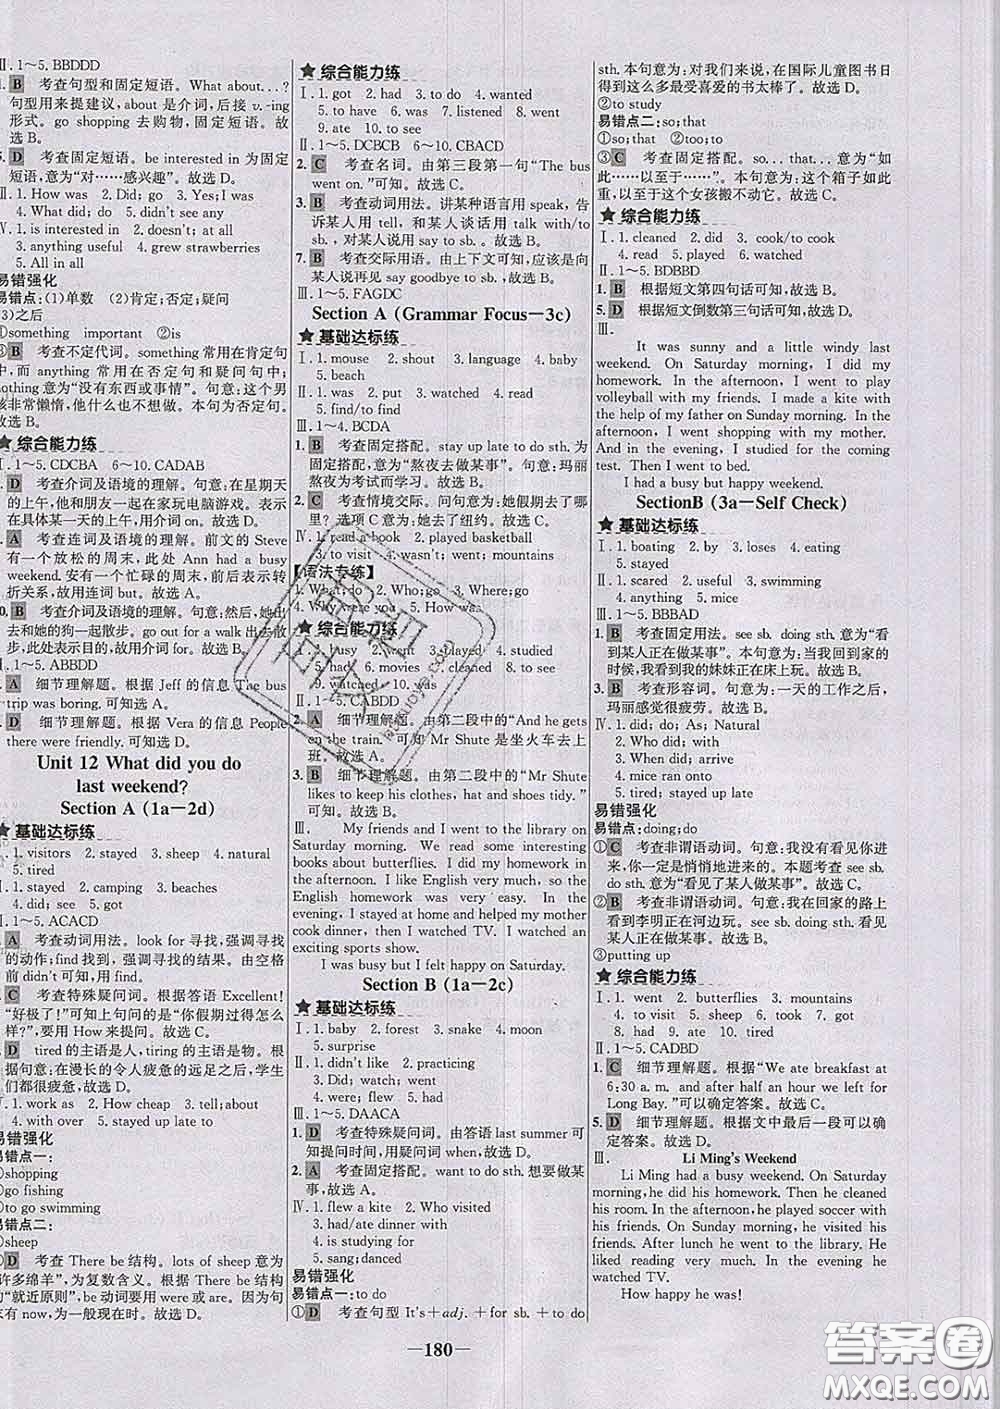 Ⅱ. 1～5. BBDDD
B 考查句型和固定短语。What about...?
句型用来提建议，about 是介词，后接 v.-ing
形式。go shopping 去购物，固定短语。故
选 B。
D 考查固定短语。be interested in 为固
定短语，意为“对……感兴趣”。故选 D。
Ⅲ. 1. How was 2. Did; go 3. Yes; I was
4. What did; do 5. didn't see any
Ⅳ. 1. is interested in 2. doesn't; at all
3. anything useful 4. grew strawberries
5. All in all
易错强化
易错点：(1)单数 (2)肯定；否定；疑问
(3)之后
①something important ②is
③B 考查不定代词。something 常用在肯定句
中，而 anything 常用在否定句和疑问句中；
nothing 意为“没有东西或事情”。句意：这个男
孩非常懒惰，他什么也不想做。本句为否定句。
故选 B。
★综合能力练
Ⅰ. 1～5. CDCBA 6～10. CADAB
D 考查介词及语境的理解。句意：在星期天
的上午，他和朋友一起在家玩电脑游戏。表示
在具体某一天的上午，用介词 on。故选 D。
A 考查连词及语境的理解。前文的 Steve
有一个放松的周末，此处 Ann had a busy
weekend. 意为有一个忙碌的周末，前后句为
转折关系，故用连词 but。故选 A。
10. B 考查介词及语境的理解。句意：然后，她出
去和她的狗一起散步。go out for a walk 出去散
步，此处表示目的，故用介词 for。故选 B。
Ⅱ. 1～5. ABBDD
A 细节理解题。根据 Jeff 的信息 The bus
trip was boring. 可知选 A。
D 细节理解题。根据 Vera 的信息 People
there were friendly. 可知选 D。
Unit 12 What did you do
last weekend?
Section A (1a—2d)
★基础达标练
Ⅰ. 1. visitors 2. stayed 3. sheep 4. natural
5. tired
Ⅱ. 1. stayed 2. camping 3. beaches
4. did; see 5. got
Ⅲ. 1～5. ACACD
A 考查动词用法。look for 寻找，强调寻找
的动作；find 找到，强调寻找的结果。由空格
前 didn't 可知，用 find。故选 A。
C 考查特殊疑问词。根据答语 Excellent!
“好极了！”可知上句问的是“你假期过得怎么
样？”，要用 How 来提问。故选 C。
D tired 的主语是人，tiring 的主语是物。根
据句意：在漫长的令人疲惫的远足之后，学生
们都很疲惫。故选 D。
Ⅳ. 1. work as 2. How cheap 3. tell; about
4. with over 5. stayed up late to
易错强化
易错点一：
①shopping
②go fishing
③to go swimming
易错点二：
①sheep
②D 考查 There be 结构。lots of sheep 意为
“许多绵羊”，为复数含义。根据 There be 结构
的“就近原则”，be 动词要用 were 或 are。因为句
末有 now，为一般现在时。故选 D。
★综合能力练
Ⅰ. 1. got 2. had 3. to do 4. wanted
5. to have 6. was 7. listened 8. went
9. ate 10. to see
Ⅱ. 1～5. DCBCB 6～10. CBACD
2. C 考查名词。由第三段第一句“The bus
went on.”可知。故选 C。
3. B 考查动词用法。讲某种语言用 speak，告
诉某人用 tell，和某人谈话用 talk with/to
sb.，对某人说用 say to sb.。故选 B。
7. B 考查交际用语。由上下文可知，应该是向
某人说再见 say goodbye to sb.，故选 B。
Ⅲ. 1～5. FAGDC
Section A (Grammar Focus—3c)
★基础达标练
Ⅰ. 1. mouse 2. shout 3. language 4. baby
5. beach
Ⅱ. 1. was 2. put 3. watched 4. read
5. find/to find
Ⅲ. 1～4. BCDA
1. B 考查固定搭配。stay up late to do sth. 为
固定搭配，意为“熬夜去做某事”。句意：玛丽
熬夜为考试而学习。故选 B。
2. C 考查情境交际。问句意为：她假期去了哪
里？选项 C 意为：她去了纽约。故选 C。
Ⅳ. 1. read a book 2. played basketball
3. to visit 4. wasn't; went; mountains
【语法专练】
1. What; do 2. Who; go 3. Where; go
4. Who were you 5. How was
★综合能力练
Ⅰ. 1. busy 2. went 3. played 4. studied
5. had 6. movies 7. cleaned 8. to see
9. watched 10. was
Ⅱ. 1～5. CABDD
2. A 细节理解题。由第二段中的“And he gets
on the train.”可知 Mr Shute 是坐火车去上
班。故选 A。
3. B 细节理解题。由第二段中的“Mr Shute
likes to keep his clothes, hat and shoes tidy.”
可知。故选 B。
Ⅲ. My friends and I went to the library on
Saturday morning. We read some interesting
books about butterflies. I did my homework in
the afternoon. I like English very much, so the
English homework was very easy. In the
evening, I stayed at home and helped my mother
cook dinner, then I watched TV. I watched an
exciting sports show.
I was busy but I felt happy on Saturday.
Section B (1a—2c)
★基础达标练
Ⅰ. 1. baby 2. forest 3. snake 4. moon
5. surprise
Ⅱ. 1. didn't like 2. practicing
3. Did; watch; went
4. were; flew 5. had
Ⅲ. 1～5. DAACA
1. D 考查特殊疑问词。由答语 last summer 可
知提问时间，用疑问词 when。故选 D。
2. A 考查固定搭配。want to do sth. 想要做某
事，故选 A。
Ⅳ. 1. flew a kite 2. Who visited
3. had/ate dinner with
4. is studying for
5. sang; danced
易错强化
易错点一：to do
①D 考查句型 It's＋adj. ＋for sb. ＋to do
sth. 本句意为：对我们来说，在国际儿童图书日
得到这么多最受喜爱的书太棒了。故选 D。
②to study
易错点二：so; that
①so; that ②too; to
③C 考查固定搭配。so... that... 意为“如
此……以至于……”。本句意为：这个箱子如此
重，以至于这个女孩搬不动它。故选 C。
★综合能力练
Ⅰ. 1. cleaned 2. did 3. cook/to cook
4. read 5. played 6. watched
Ⅱ. 1～5. BDBBD
1. B 根据短文第四句话可知。故选 B。
5. D 根据短文倒数第三句话可知。故选 D。
Ⅲ.
It was sunny and a little windy last
weekend. On Saturday morning, I did my
homework. In the afternoon, I went to play
volleyball with my friends. I made a kite with
the help of my father on Sunday morning. In the
afternoon, I went shopping with my mother.
And in the evening, I studied for the coming
test. Then I went to bed.
I had a busy but happy weekend.
SectionB (3a—Self Check)
★基础达标练
Ⅰ. 1. boating 2. by 3. loses 4. eating
5. stayed
Ⅱ. 1. scared 2. useful 3. swimming
4. anything 5. mice
Ⅲ. 1～5. BBBAD
1. B 考查固定用法。see sb. doing sth. 意为“看
到某人正在做某事”。句意为：当我回到家的
时候，我看到我的妹妹正在床上玩。故选 B。
3. B 考查形容词。句意为：一天的工作之后，
玛丽感觉很疲劳。故选 B。
Ⅳ. 1. did, do; As; Natural
2. Who did; with
3. When did; arrive
4. mice ran onto
5. tired; stayed up late
易错强化
易错点：doing; do
①C 考查非谓语动词。句意：我没有看见你进
来。你一定是悄悄地进来的。本题考查 see sb.
do sth. 意为“看见了某人做某事”。故选 C。
②B 考查非谓语动词。句意：我在回家的路上
看到李明正在河边玩。see sb. doing sth. 看见
某人正在做某事。故选 B。
③putting up
★综合能力练
Ⅰ. 1. went 2. butterflies 3. mountains
4. to visit 5. sheep 6. took 7. got
8. had 9. ate 10. tired
Ⅱ. 1～5. CADBD
1. C 细节理解题。根据“We ate breakfast at
6:30 a. m. and after half an hour we left for
Long Bay.”可以确定答案。故选 C。
5. D 细节理解题。根据文中最后一段可以确
定答案。故选 D。
Ⅲ. Li Ming's Weekend
Li Ming had a busy weekend. On Saturday
morning, he did his homework. Then he cleaned
his room. In the afternoon, he played soccer with
his friends. On Sunday morning, he visited his
friends. After lunch he went to the mountains.
He felt really relaxed. In the evening he
watched TV.
How happy he was!
—180—
答案圈
MXQE.COM